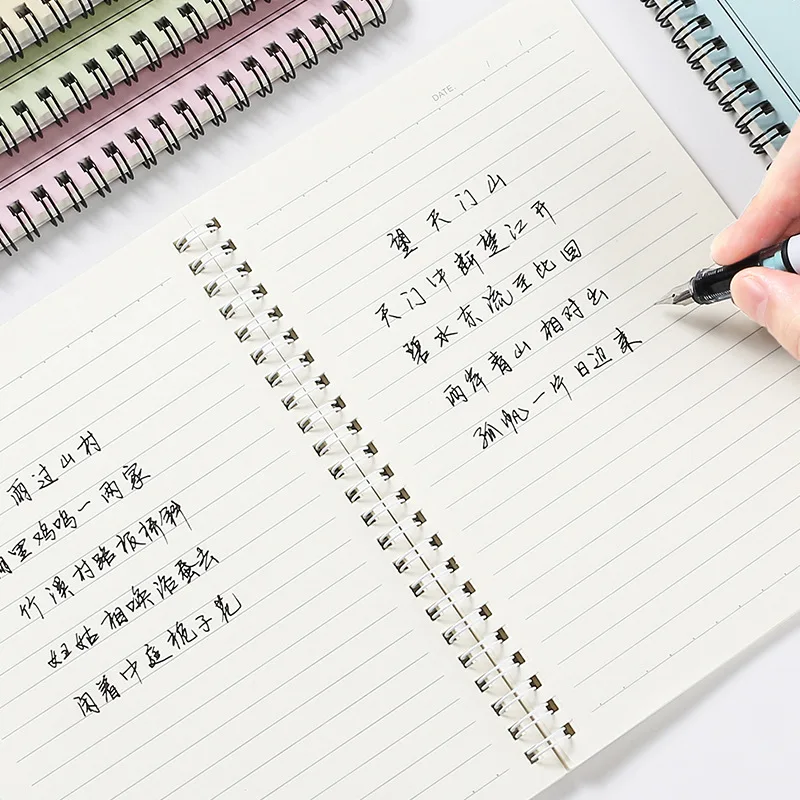 雨过山村
雨里鸡鸣一两家
竹溪村路板桥斜
妇姑相唤浴蚕去
闲着中庭栀子花
DATE / /
望天门山
天门中断楚江开
碧水东流至此回
两岸青山相对出
孤帆一片日边来